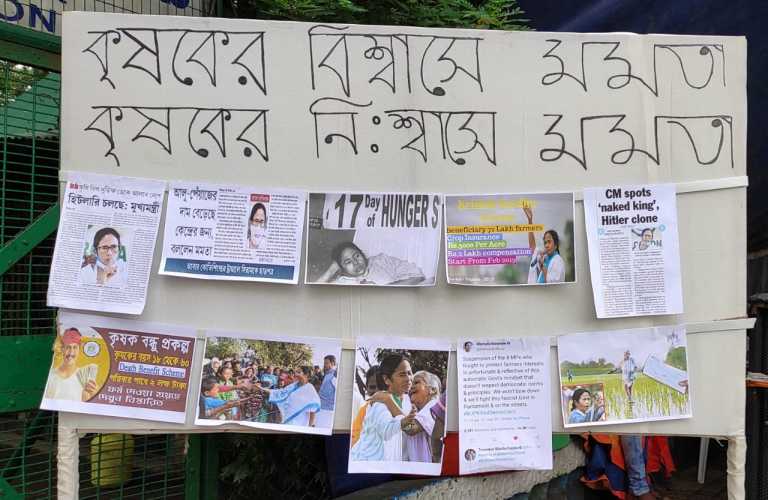 ON
কৃষকের বিশ্বাসে মমতা
কৃষকের নিঃশ্বাসে মমতা
হিটলারি চলছে: মুখ্যমন্ত্রী
আলু-পেঁয়াজের
দাম বেড়েছে
কেন্দ্রের জন্য
বললেন মমতা
17 Day
of HUNGER S
Beneficiary 72 Lakh farmers
Crop Insurance
Rs.5000 Per Acre
Rs.2 Lakh compensation
Start From Feb 2019
CM spots
'naked king',
Hitler clone
কৃষক বন্ধু প্রকল্প
কৃষকের বয়স ১৮ থেকে ৬০
Death Benefit Scheme
পরিবার পাবে ২ লক্ষ টাকা
Suspension of the 8 MPs who
fought to protect farmers interests
is unfortunate & reflective of this
autocratic Govt's mindset that
doesn't respect democratic norms
& principles. We won't bow down
& we'll fight this fascist Govt in
Parliament & on the streets.